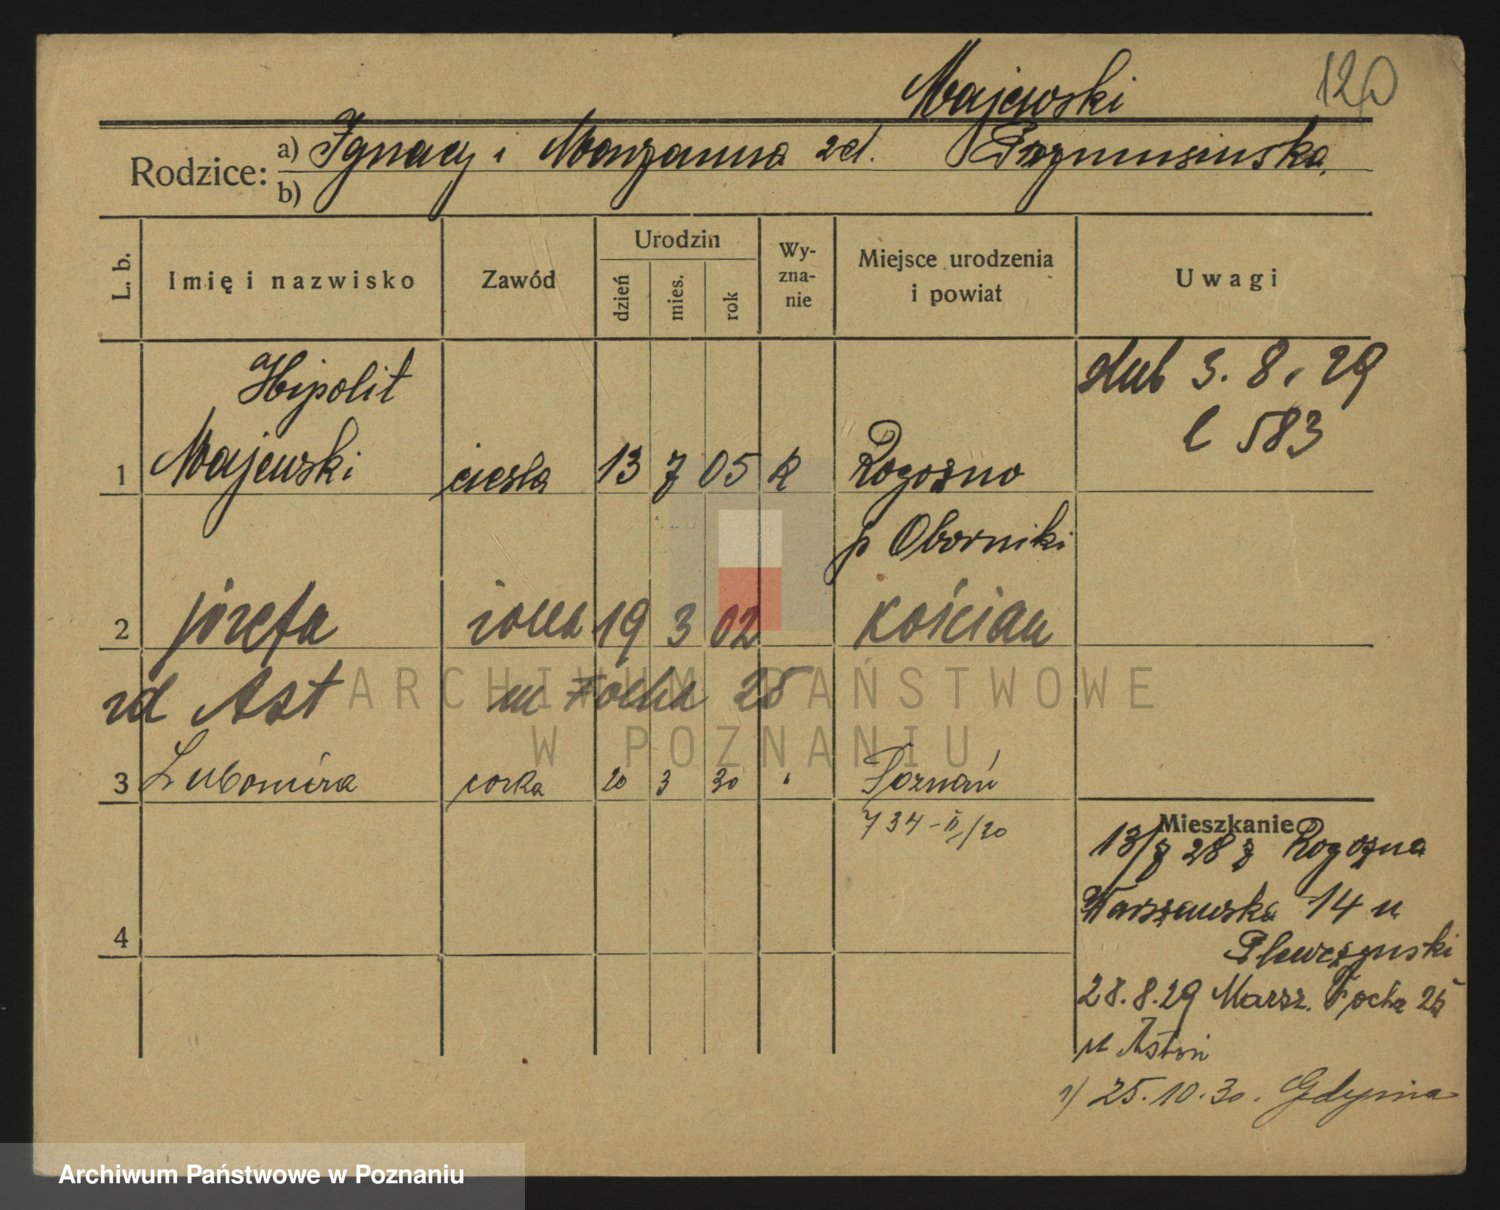 Majewski
120
Rodzice: a) Ignacy i Maryanna zd.
b)
L. b.
Imię i nazwisko
Zawód
Urodzin
dzień
mies.
rok
Wy-
zna-
nie
Miejsce urodzenia
i powiat
Uwagi
Hipolit
ślub 3. 8. 29
l 583
1 Majewski cieśla 13 7 05 k Rogoźno
p Oborniki
2 Józefa żona 19 3 02 Kościan
zd Ast m Focha 25
ARCHIWUM PAŃSTWOWE
W POZNANIU
3 Lubomira corka 20 3 30 " Poznań
734-II/30
Mieszkanie
13/7 28 z Rogozna
Warszawska 14 u
Plewczynski
4
28.8.29 Marsz. Focha 25
u
25.10.30. Gdynia
Archiwum Państwowe w Poznaniu